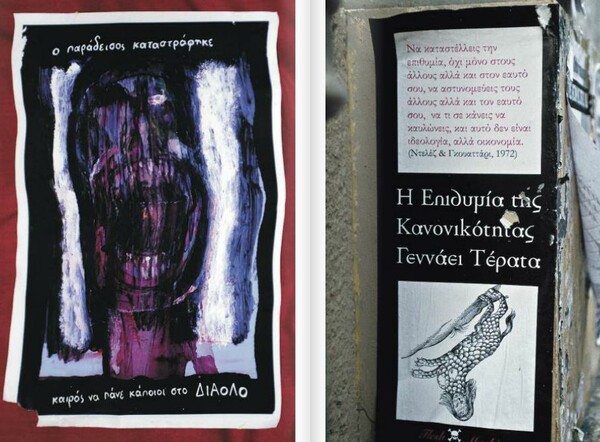 ο παράδεισος καταστράφηκε
καιρός να πάνε κάποιοι στο ΔΙΑΟΛΟ
Να καταστέλλεις την
επιθυμία, όχι μόνο στους
άλλους αλλά και στον εαυτό
σου, να αστυνομεύεις τους
άλλους αλλά και τον εαυτό
σου, να τι σε κάνεις να
καυλώνεις, και αυτό δεν είναι
ιδεολογία, αλλά οικονομία.
(Ντελέζ & Γκουαττάρι, 1972)
Η Επιθυμία της
Κανονικότητας
Γεννάει Τέρατα